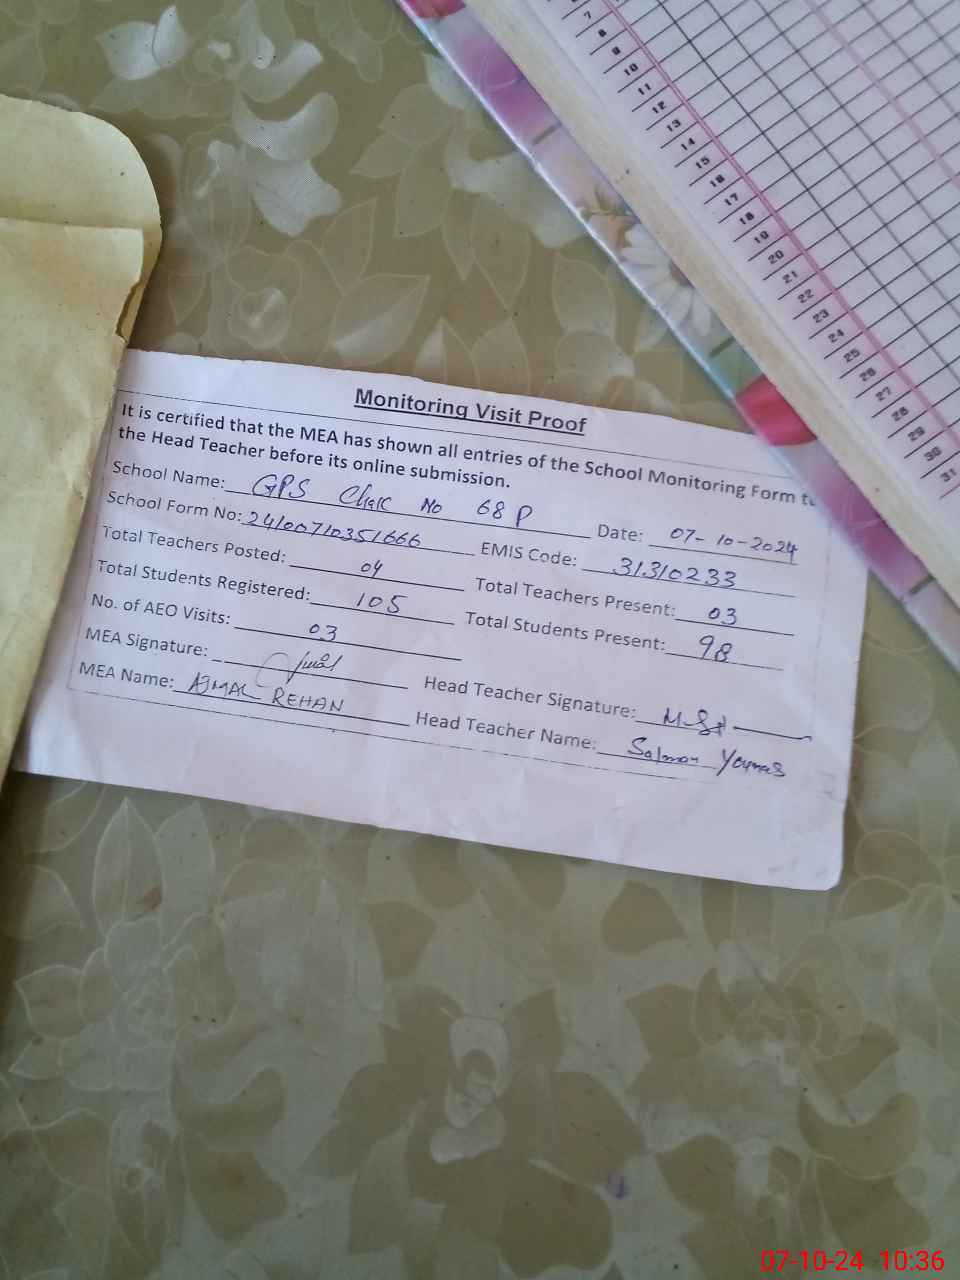 7
8
9
10
11
12
13
14
15
16
17
18
19
20
21
22
23
24
25
26
27
28
29
30
31
Monitoring Visit Proof
It is certified that the MEA has shown all entries of the School Monitoring Form to
the Head Teacher before its online submission.
School Name: GPS Chak No 68 P Date: 07-10-2024
School Form No: 24100710351666 EMIS Code: 31310233
Total Teachers Posted: 04 Total Teachers Present: 03
Total Students Registered: 105 Total Students Present: 98
No. of AEO Visits: 03
MEA Signature: Head Teacher Signature:
MEA Name: AJMAL REHAN Head Teacher Name: Salman
07-10-24 10:36